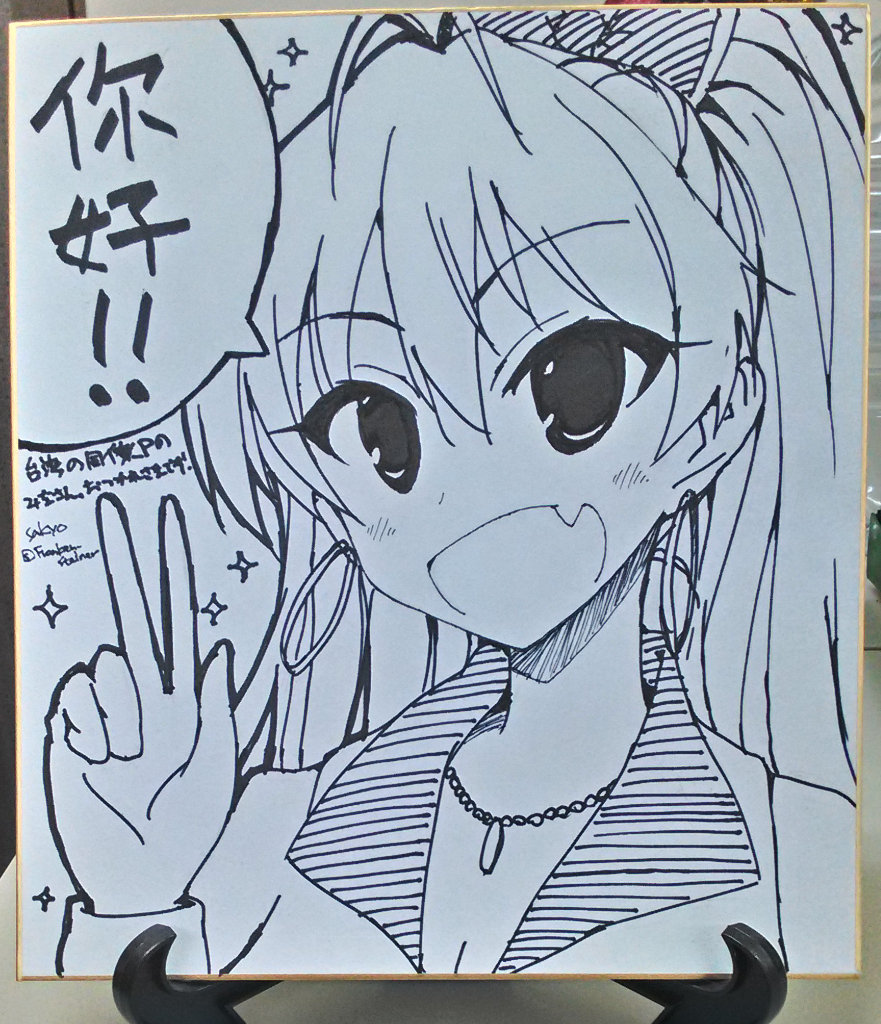 你好!!
台湾の同僚Pの
みなさん。おつかれさまです!
sakyo
@Franken_
stainer